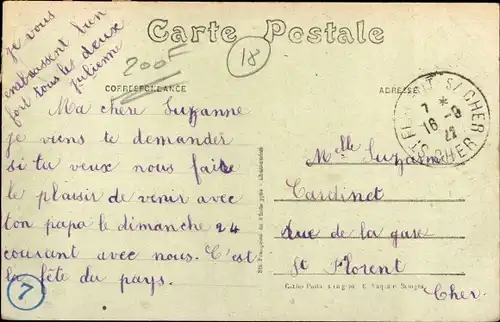 Carte Postale
je vous
embrassent bien
fort tous les deux
julienne
200F
18
CORRESPONDANCE
ADRESSE
Ma chère Suzanne
je viens te demander
si tu veux nous faire
le plaisir de venir avec
ton papa le dimanche 24
courant avec nous. C'est
la fête du pays.
7
ST FLORENT S/CHER
7 *
16 - 9
22
CHER
Mlle Suzanne
Cardinet
rue de la gare
St Florent
Cher